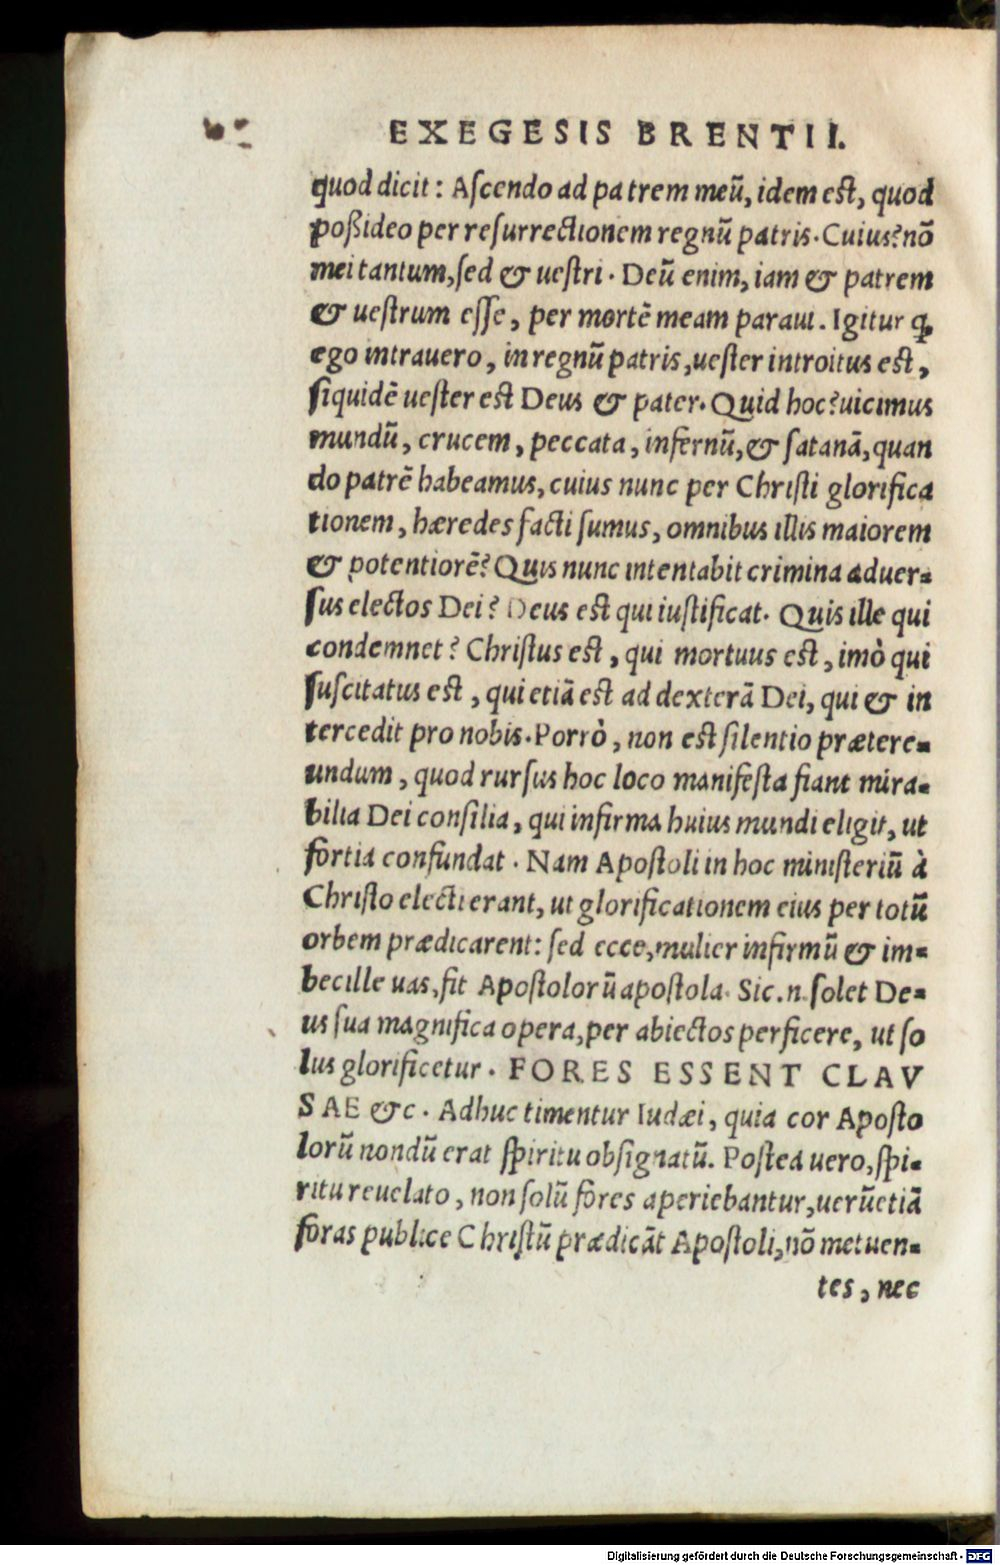 EXEGESIS BRENTII.
quod dicit: Aſcendo ad patrem meũ, idem eſt, quod
poßideo per reſurrectionem regnũ patris. Cuius? nõ
mei tantum, ſed & ueſtri. Deũ enim, iam & patrem
& ueſtrum eſſe, per mortẽ meam paraui. Igitur ꝙ
ego intrauero, in regnũ patris, ueſter introitus eſt,
ſiquidẽ ueſter eſt Deus & pater. Quid hoc? uicimus
mundũ, crucem, peccata, infernũ, & ſatanã, quan
do patrẽ habeamus, cuius nunc per Chriſti glorifica
tionem, hæredes facti ſumus, omnibus illis maiorem
& potentiorẽ? Quis nunc intentabit crimina aduer-
ſus electos Dei? Deus eſt qui iuſtificat. Quis ille qui
condemnet? Chriſtus eſt, qui mortuus eſt, imò qui
ſuſcitatus eſt, qui etiã eſt ad dexterã Dei, qui & in
tercedit pro nobis. Porrò, non eſt ſilentio prætere-
undum, quod rurſus hoc loco manifeſta fiant mira-
bilia Dei conſilia, qui infirma huius mundi eligit, ut
fortia confundat. Nam Apoſtoli in hoc miniſteriũ à
Chriſto electi erant, ut glorificationem eius per totũ
orbem prædicarent: ſed ecce, mulier infirmũ & im-
becille uas, fit Apoſtolorũ apoſtola. Sic.n. ſolet De-
us ſua magnifica opera, per abiectos perficere, ut ſo
lus glorificetur. FORES ESSENT CLAV
SAE &c. Adhuc timentur Iudæi, quia cor Apoſto
lorũ nondũ erat ſpiritu obſignatũ. Poſtea uero, ſpi-
ritu reuelato, non ſolũ fores aperiebantur, uerũetiã
foras publice Chriſtũ prædicãt Apoſtoli, nõ metuen-
tes, nec
Digitalisierung gefördert durch die Deutsche Forschungsgemeinschaft - DFG